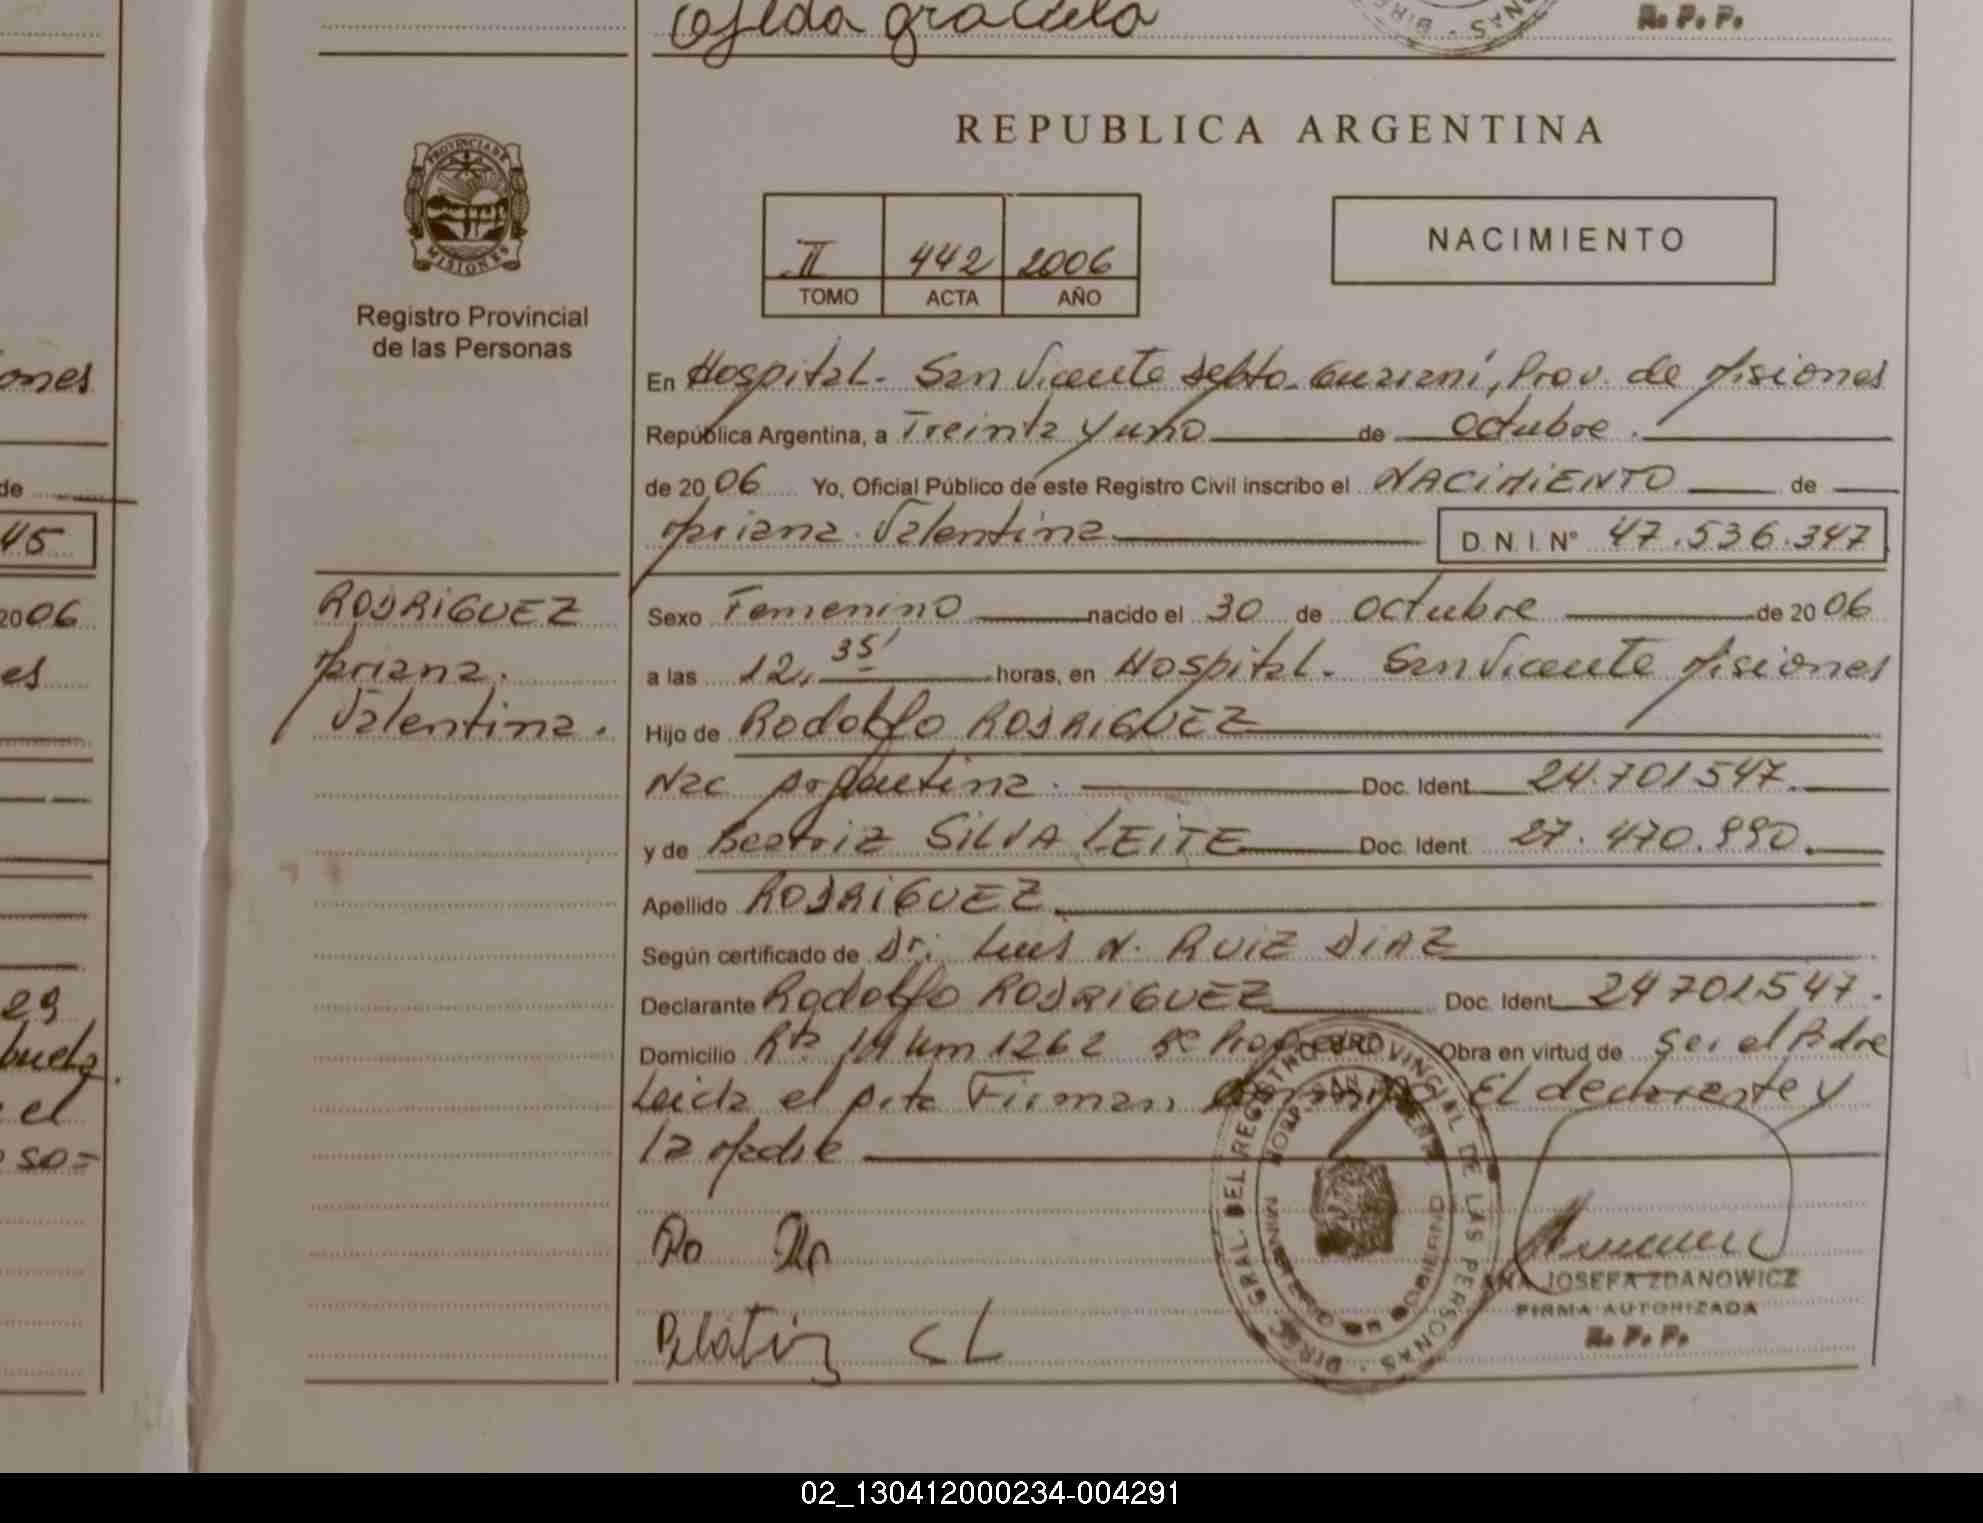 Ofelda graciela
R. P. P.
REPUBLICA ARGENTINA
PROVINCIA DE
MISIONES
Registro Provincial
de las Personas
II 442 2006
TOMO ACTA AÑO
NACIMIENTO
ones
En Hospital - San Vicente Depto. Guarani, Prov. de Misiones
República Argentina, a Treinta y uno de octubre.
de
de 20 06 Yo, Oficial Público de este Registro Civil inscribo el NACIMIENTO de
45
Mariana Valentina D.N.I. N° 47.536.347
2006
RODRIGUEZ
Sexo Femenino nacido el 30 de octubre de 20 06
es
Mariana
a las 12, 35' horas, en Hospital - San Vicente Misiones
Valentina.
Hijo de Rodolfo RODRIGUEZ
Nac Argentina. Doc. Ident. 24.701547.
y de Beatriz SILVA LEITE Doc. Ident. 27.470.990.
Apellido RODRIGUEZ
Según certificado de Dr. Luis N. RUIZ DIAZ
29
Declarante Rodolfo RODRIGUEZ Doc. Ident. 24701547.
buela.
Domicilio Rta 14 km 1262 Obra en virtud de Ser el Padre
el
Leida el Acta Firman El declarante y
so=
la Madre
DIREC. GRAL. DEL REGISTRO PROVINCIAL DE LAS PERSONAS
Beatriz S L
ANA JOSEFA ZDANOWICZ
FIRMA AUTORIZADA
R. P. P.
02_130412000234-004291